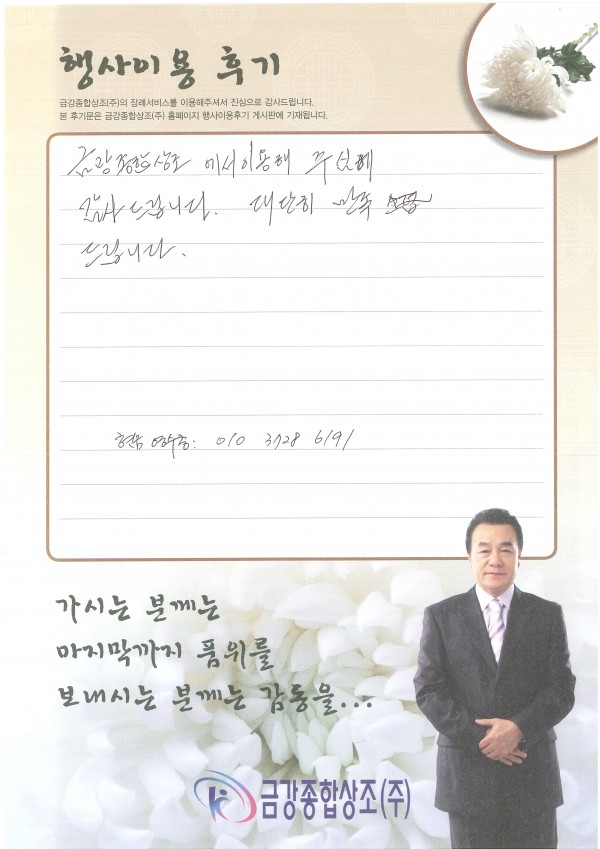 행사이용 후기
금강종합상조(주)의 장례서비스를 이용해주셔서 진심으로 감사드립니다.
본 후기문은 금강종합상조(주) 홈페이지 행사이용후기 게시판에 기재됩니다.
금강종합상조 에서 이용해 주신데
감사 드립니다. 대단히 만족
드립니다.
010 3728 6191
가시는 분께는
마지막까지 품위를
보내시는 분께는 감동을...
금강종합상조(주)